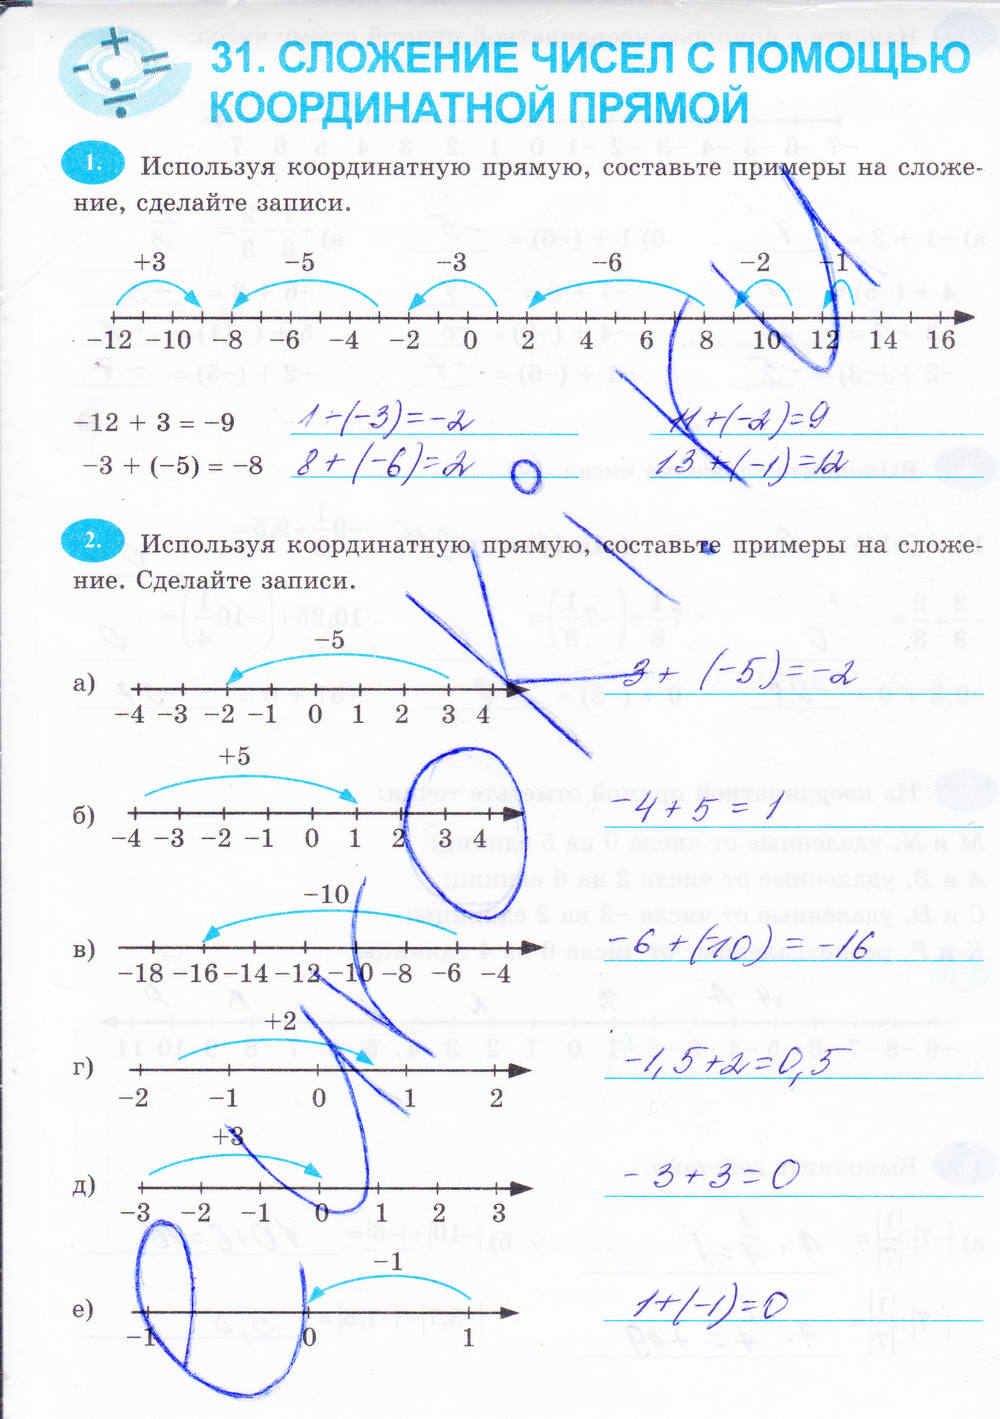 31. СЛОЖЕНИЕ ЧИСЕЛ С ПОМОЩЬЮ
КООРДИНАТНОЙ ПРЯМОЙ
1. Используя координатную прямую, составьте примеры на сложе-
ние, сделайте записи.
+3 −5 −3 −6 −2 −1
−12 −10 −8 −6 −4 −2 0 2 4 6 8 10 12 14 16
−12 + 3 = −9 1+(−3)=−2 11+(−2)=9
−3 + (−5) = −8 8+(−6)=2 13+(−1)=12
2. Используя координатную прямую, составьте примеры на сложе-
ние. Сделайте записи.
−5
а) 3+(−5)=−2
−4 −3 −2 −1 0 1 2 3 4
+5
б) −4+5=1
−4 −3 −2 −1 0 1 2 3 4
−10
в) −6+(−10)=−16
−18 −16 −14 −12 −10 −8 −6 −4
+2
г) −1,5+2=0,5
−2 −1 0 1 2
+3
д) −3+3=0
−3 −2 −1 0 1 2 3
−1
е) 1+(−1)=0
−1 0 1